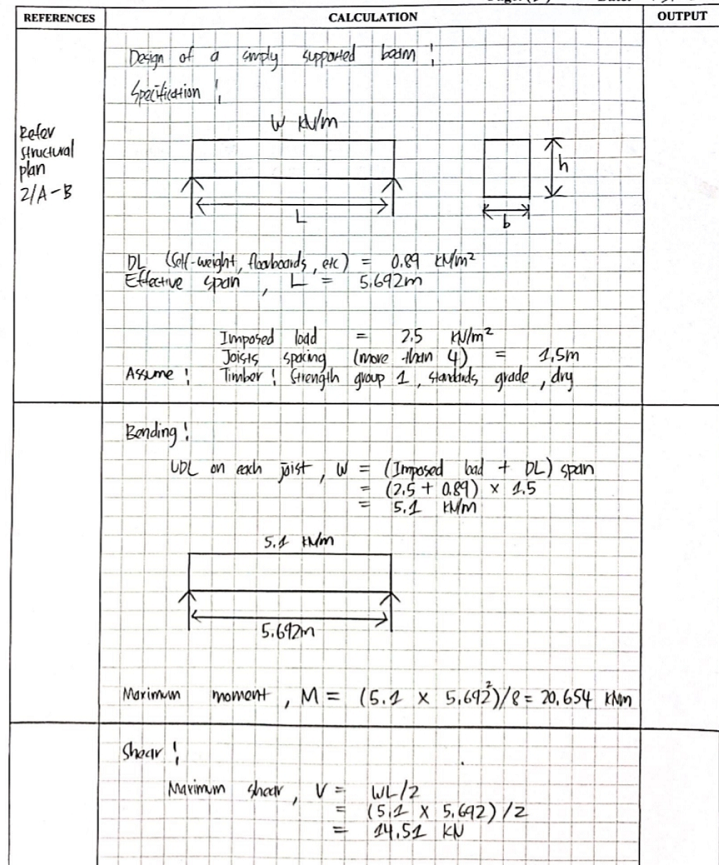 REFERENCES
CALCULATION
OUTPUT
Design of a simply supported beam :
Specification :
Refer
structural
plan
2/A-B
W kN/m
L
h
b
DL (self-weight, floorboards, etc) = 0.89 kN/m²
Effective span , L = 5.692m
Imposed load = 2.5 kN/m²
Joists spacing (more than 4) = 1.5m
Assume : Timber : Strength group 1, standards grade, dry
Bending :
UDL on each joist, W = (Imposed load + DL) span
= (2.5 + 0.89) × 1.5
= 5.1 kN/m
5.1 kN/m
5.692m
Maximum moment , M = (5.1 × 5.692²)/8 = 20.654 kNm
Shear :
Maximum shear, V = WL/2
= (5.1 × 5.692)/2
= 14.51 kN